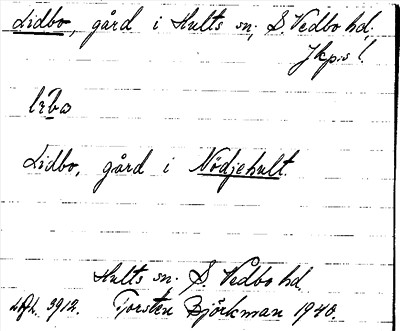 Lidbo, gård i Hults sn, S. Vedbo hd,
Jkp.s l.
Lidbo, gård i Nödjehult.
Hults sn. S. Vedbo hd.
3912. Torsten Björkman 1940.